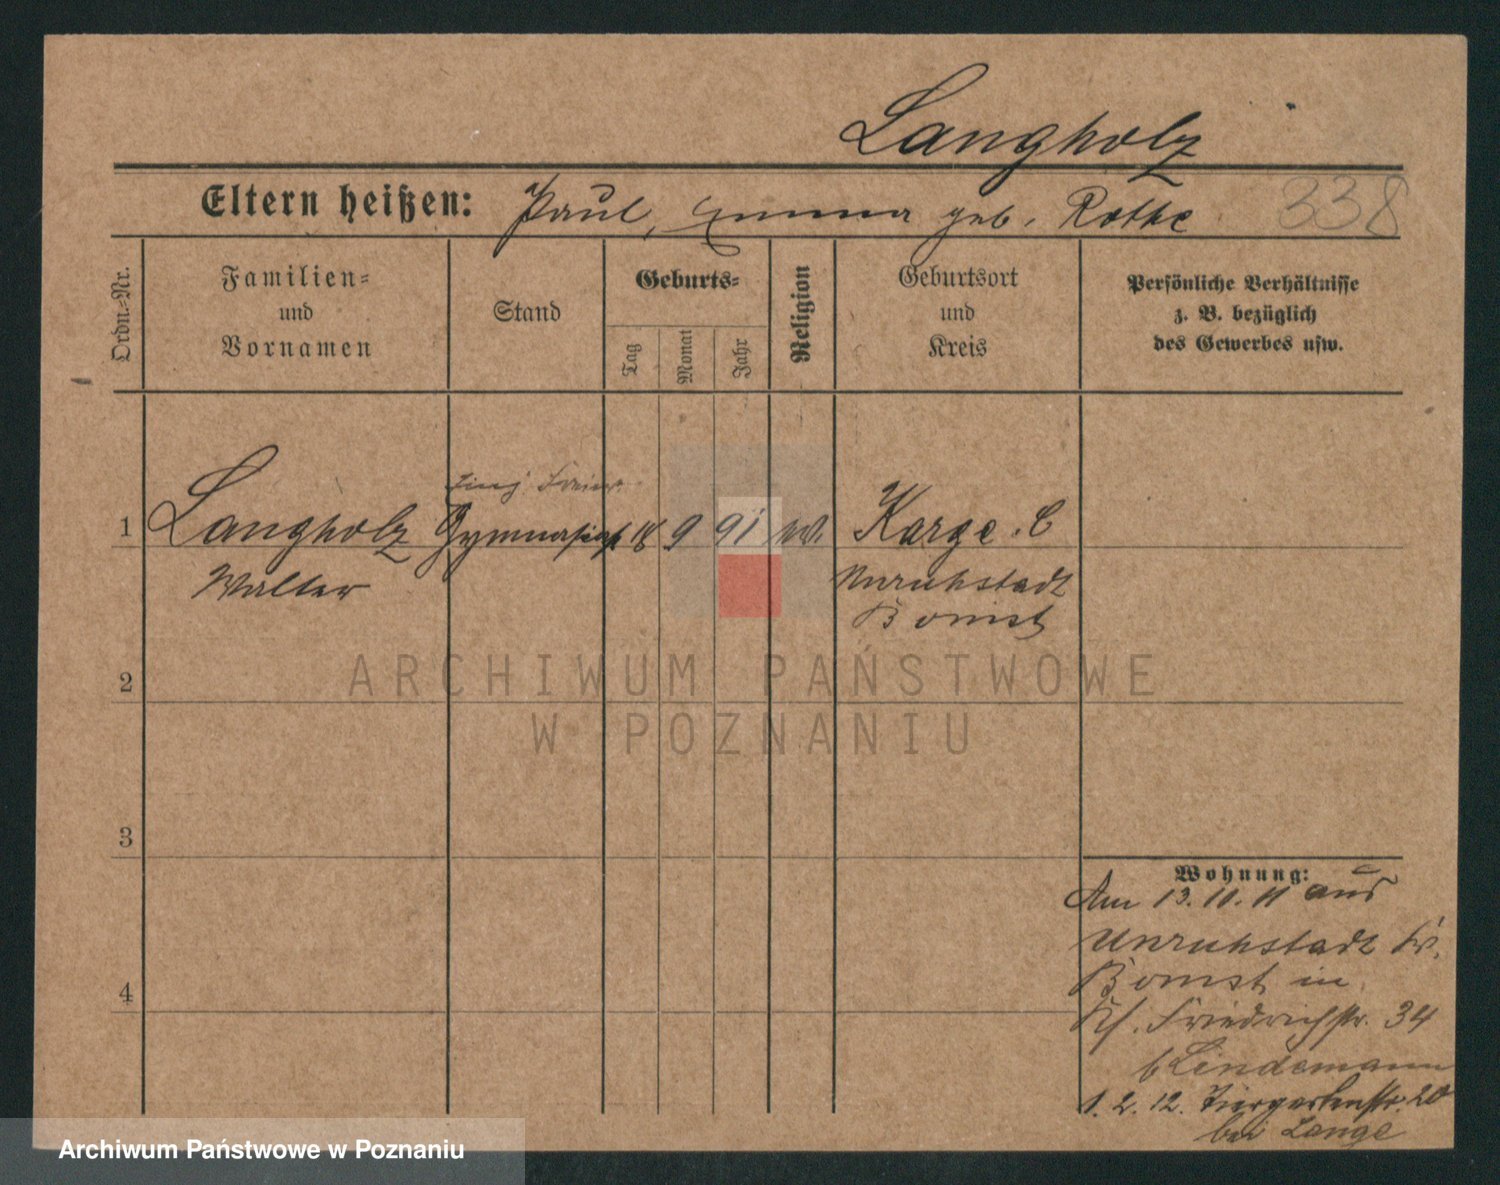 Langholz
Eltern heißen: Paul, Emma geb. Rothe 338
Ordn.-Nr.
Familien-
und
Vornamen
Stand
Geburts-
Tag
Monat
Jahr
Religion
Geburtsort
und
Kreis
Persönliche Verhältnisse
z. B. bezüglich
des Gewerbes usw.
Einj. Freiw.
1 Langholz Gymnasiast 18 9 91 Karge
Walter Unruhstadt
Bomst
ARCHIWUM PAŃSTWOWE
2
W POZNANIU
3
Wohnung:
Am 13. 10. 11 aus
Unruhstadt Kr.
Bomst in
4
Friedrichstr. 34
b Lindemann
1. 2. 12. Tiergartenstr. 20
bei Lange
Archiwum Państwowe w Poznaniu